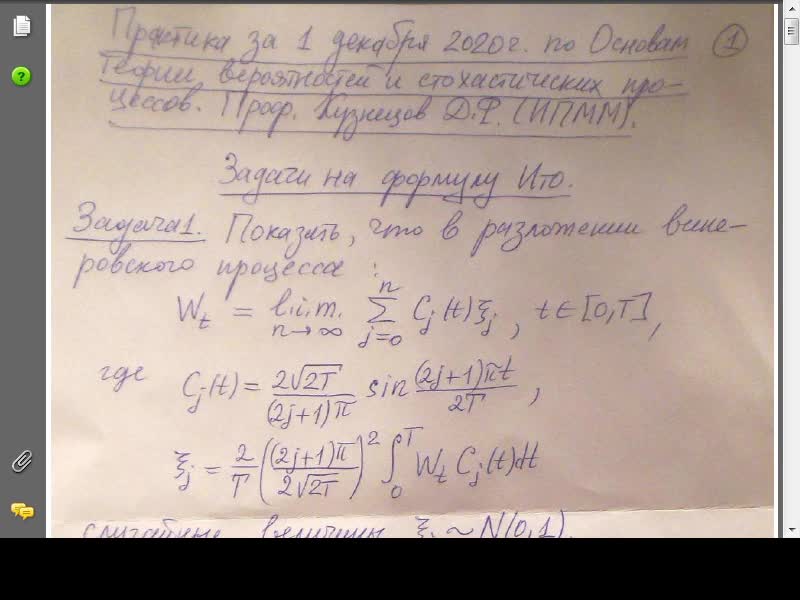 Практика за 1 декабря 2020г. по Основам ①
теории вероятностей и стохастических про-
цессов. Проф. Кузнецов Д.Ф. (ИПММ).
Задачи на формулу Ито.
Задача1. Показать, что в разложении вине-
ровского процесса :
W_t = l.i.m._{n→∞} ∑_{j=0}^{n} C_j(t)ξ_j, t∈[0,T],
где C_j(t) = \frac{2√{2T}}{(2j+1)π} sin \frac{(2j+1)πt}{2T},
ξ_j = \frac{2}{T} (\frac{(2j+1)π}{2√{2T}})^2 ∫_0^T W_t C_j(t)dt
случайные величины ξ_j ~ N(0,1).